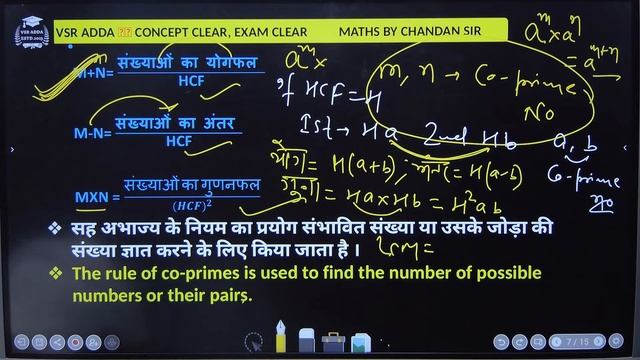 VSR ADDA CONCEPT CLEAR, EXAM CLEAR MATHS BY CHANDAN SIR
VSR ADDA
ESTD.2023
M+N= संख्याओं का योगफल / HCF
M-N= संख्याओं का अंतर / HCF
MXN = संख्याओं का गुणनफल / (HCF)²
aᵐ x
aᵐ x aⁿ
= aᵐ⁺ⁿ
m, n → Co-prime
No
if HCF = H
Ist → Ha 2nd Hb
a, b
Co-prime
no
योग = H(a+b) ; अन्तर = H(a-b)
गुणा = Ha x Hb = H²ab
LCM =
❖ सह अभाज्य के नियम का प्रयोग संभावित संख्या या उसके जोड़ा की
संख्या ज्ञात करने के लिए किया जाता है ।
❖ The rule of co-primes is used to find the number of possible
numbers or their pairs.
7 / 15